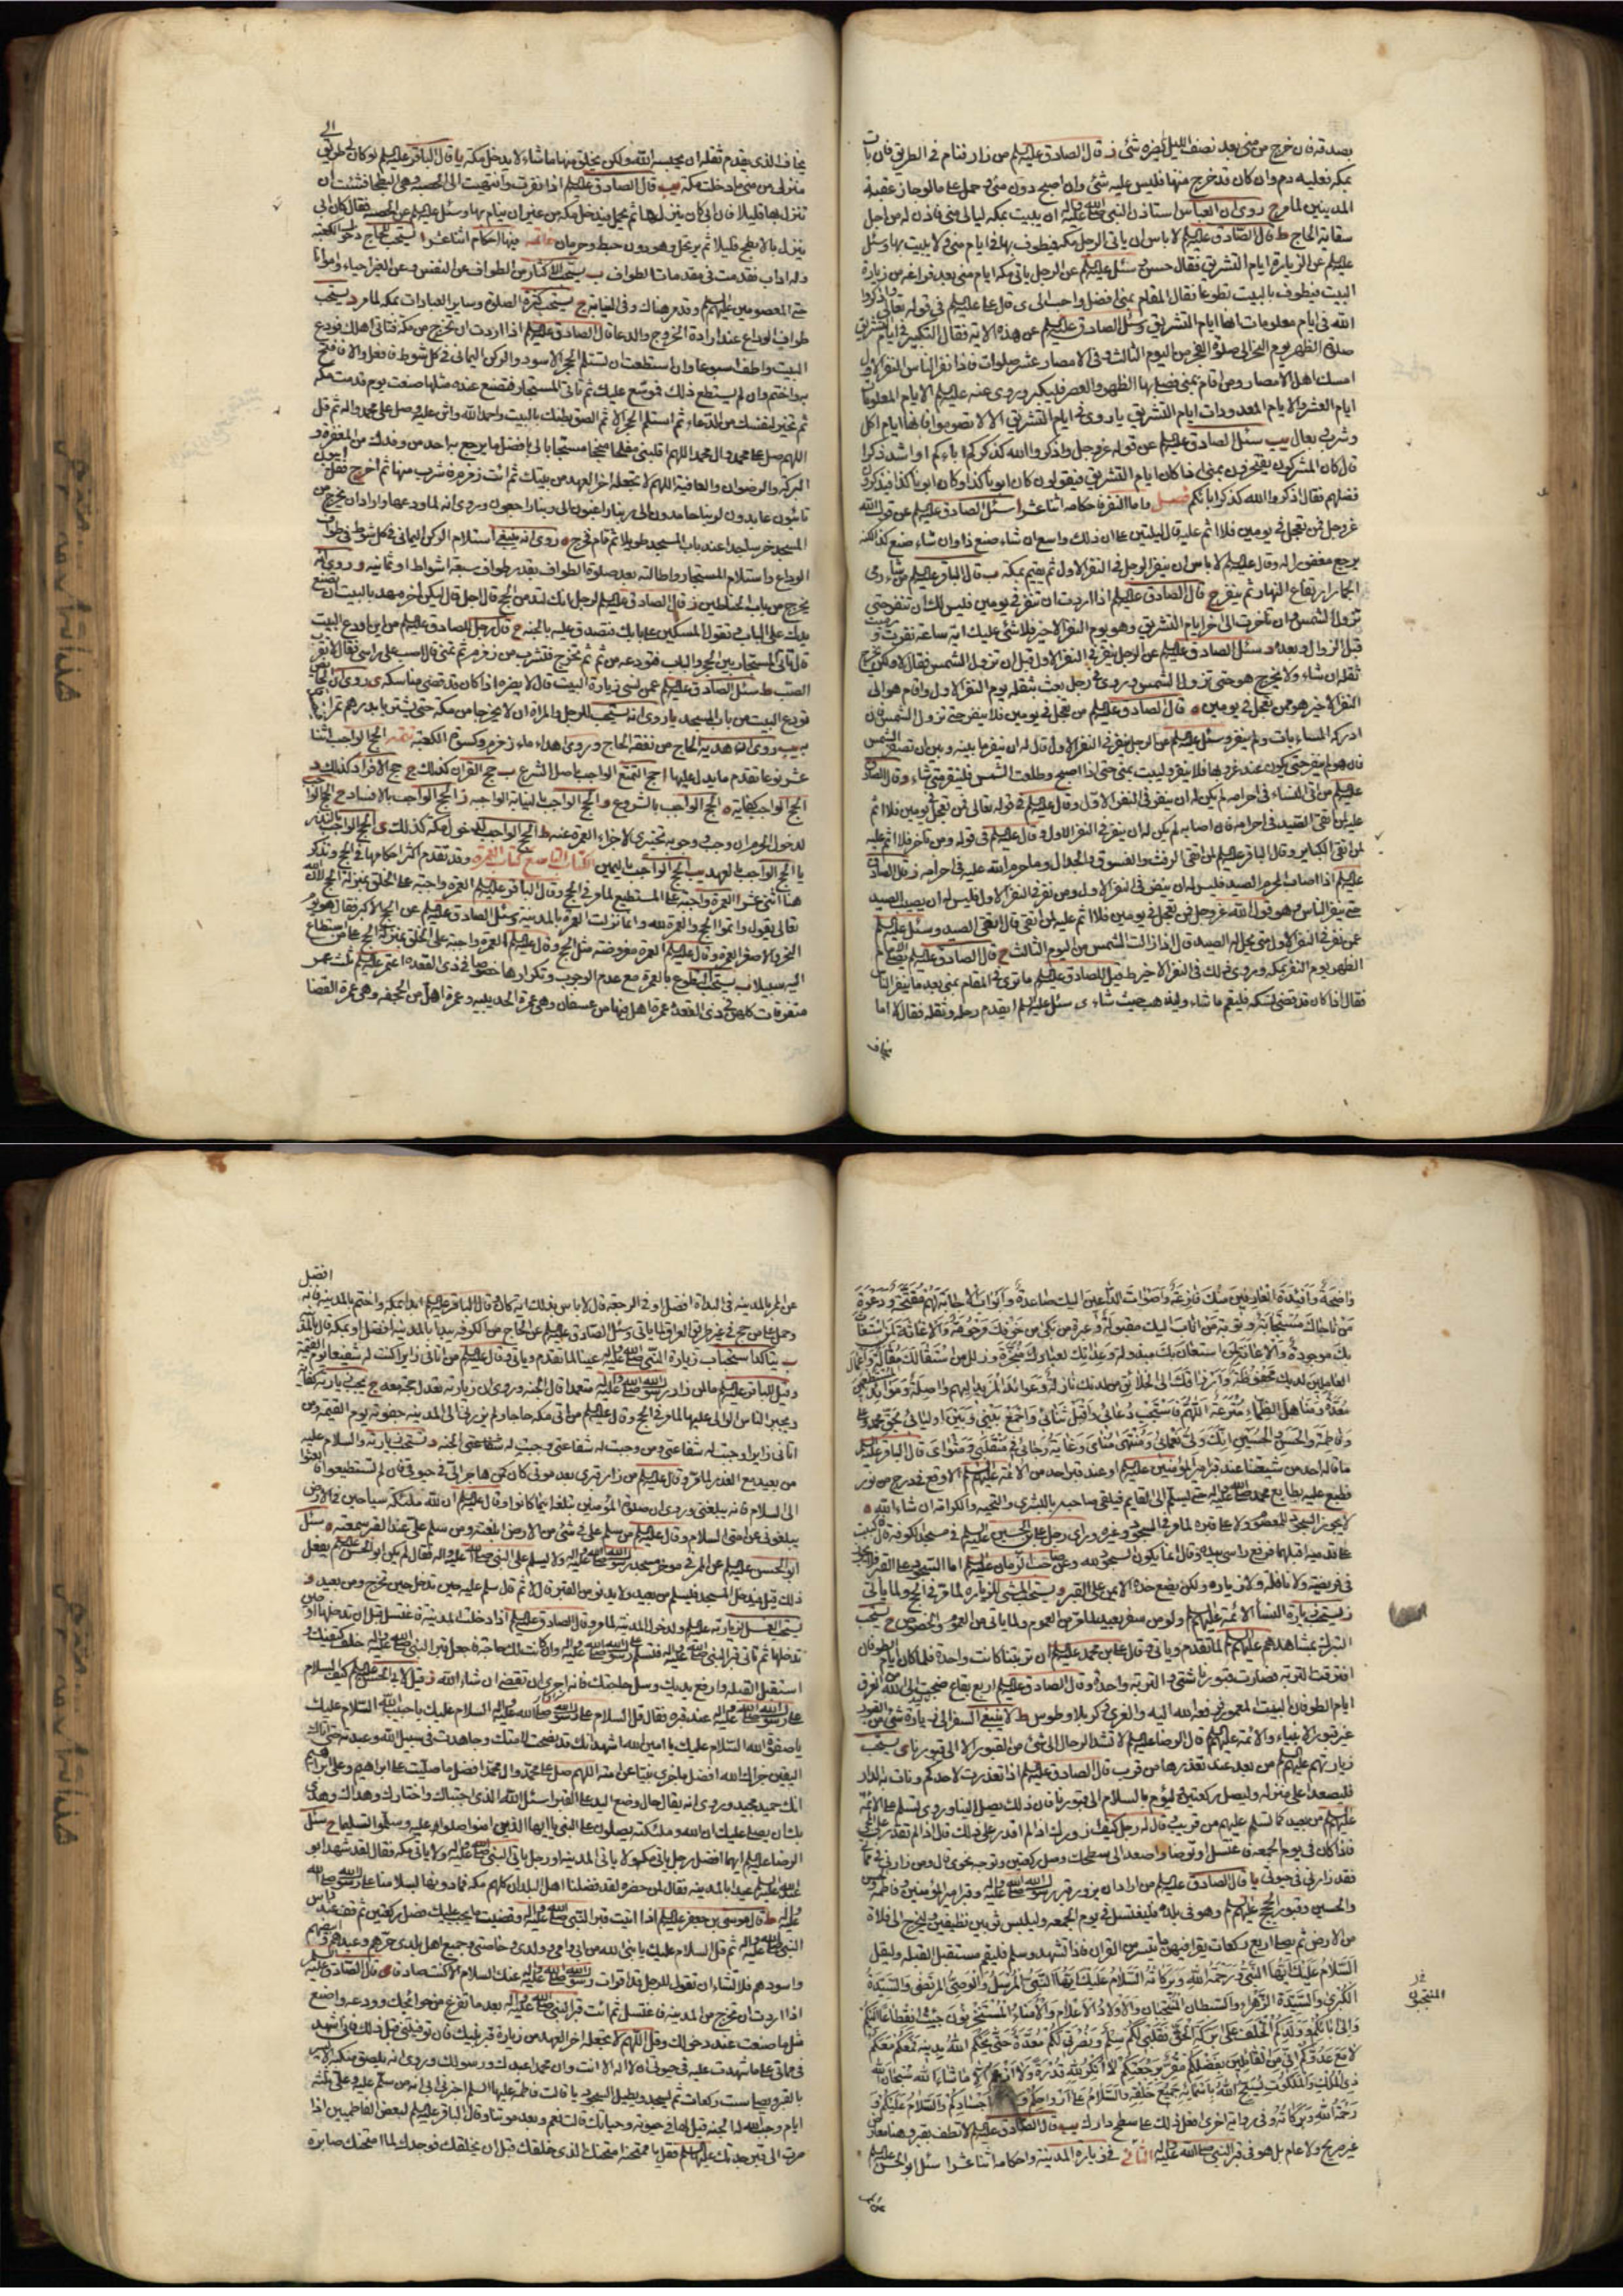 بصدقه فان خرج من منى بعد نصف الليل لم يضره شئ ز قال الصادق عليه السلم من زار فنام في الطريق فان بات
بمكه فعليه دم وان كان قد خرج منها فليس عليه شئ وان اصبح دون منى وحمل على ما لو جاز عقبة
المدينين لما مر ح روى ان العباس استاذن النبي صلى الله عليه واله ان يبيت بمكه ليالى منى فاذن له من اجل
سقاية الحاج ط قال الصادق عليه السلم لا باس ان ياتى الرجل مكه فيطوف بها في ايام منى ولا يبيت بها وسئل
عليه السلم عن الزيارة ايام التشريق فقال حسن وسئل عليه السلم عن الرجل ياتى مكه ايام منى بعد فراغه من زيارة
البيت فيطوف بالبيت تطوعا فقال المقام بمنى افضل واحب الى ى قال على عليه السلم في قوله تعالى واذكروا
الله فى ايام معلومات انها ايام التشريق وسئل الصادق عليه السلم عن هذه الاية فقال التكبير في ايام التشريق
صلوة الظهر يوم النحر الى صلوة الفجر من اليوم الثالث وفى الامصار عشر صلوات فاذا نفر الناس النفر الاول
امسك اهل الامصار ومن اقام بمنى فصلى بها الظهر والعصر فليكبر وروى عنه عليه السلم الايام المعلومات
ايام العشر والايام المعدودات ايام التشريق يا روى في ايام التشريق الا لا تصوموا فانها ايام اكل
وشرب وبعال يب سئل الصادق عليه السلم عن قوله عز وجل واذكروا الله كذكركم اباءكم او اشد ذكرا
قال كان المشركون يفتخرون بمنى اذا كان ايام التشريق فيقولون كان ابونا كذا وكان ابونا كذا فيذكرون
فضلهم فقال اذكروا الله كذكركم اباءكم فصل واما النفر فاحكامه اثنا عشر ا سئل الصادق عليه السلم عن قول الله
عز وجل فمن تعجل في يومين فلا اثم عليه قال
يرجع مغفورا له وقال عليه السلم لا باس ان ينفر الرجل في النفر الاول ثم يقيم بمكه ب قال الباقر عليه السلم من شاء رمى
الجمار ارتفاع النهار ثم ينفر ج قال الصادق عليه السلم اذا اردت ان تنفر في يومين فليس لك ان تنفر حتى
تزول الشمس وان تاخرت الى اخر ايام التشريق وهو يوم النفر الاخير فلا شئ عليك اية ساعة نفرت ورميت
قبل الزوال او بعده وسئل الصادق عليه السلم عن الرجل ينفر في النفر الاول قبل ان تزول الشمس فقال لا ولكن يخرج
ثقله ان شاء ولا يخرج هو حتى تزول الشمس وروى في رجل بعث بثقله يوم النفر الاول واقام هو الى
النفر الاخير هو ممن تعجل في يومين ه قال الصادق عليه السلم من تعجل في يومين فلا ينفر حتى تزول الشمس فان
ادركه المساء بات ولم ينفر وسئل عليه السلم عن الرجل ينفر في النفر الاول قال له ان ينفر ما بينه وبين ان تصفر الشمس
فان هو لم ينفر حتى يكون عند غروبها فلا ينفر وليبت بمنى حتى اذا اصبح وطلعت الشمس فلينفر متى شاء و قال الصادق
عليه السلم من اتى النساء في احرامه لم يكن له ان ينفر في النفر الاول وقال عليه السلم في قوله تعالى فمن تعجل في يومين فلا اثم
لمن اتقى الكبائر وقال الباقر عليه السلم لمن اتقى الرفث والفسوق والجدال وما حرم الله عليه في احرامه ز قال الصادق
عليه السلم اذا اصاب المحرم الصيد فليس له ان ينفر في النفر الاول ومن نفر في النفر الاول فليس له ان يصيب الصيد
حتى ينفر الناس وهو قول الله عز وجل فمن تعجل في يومين فلا اثم عليه لمن اتقى قال اتقى الصيد وسئل عليه السلم
عمن نفر في النفر الاول متى يحل له الصيد قال اذا زالت الشمس من اليوم الثالث ح قال الصادق عليه السلم يصلى الامام
الظهر يوم النفر بمكه وروى ذلك في النفر الاخير ط قيل للصادق عليه السلم ما ترى في المقام بمنى بعد ما ينفر الناس
فقال اذا كان قد قضى نسكه فليقم ما شاء وليذهب حيث شاء ى سئل عليه السلم ايقدم رحله وثقله فقال لا اما
يخاف
يخاف الذى يقدم ثقله ان يحبسه الله ولكن يخلف منها ما شاء لا يدخل مكه يا قال الباقر عليه السلم لو كان لى طريق الى
منزلى من منى ما دخلت مكه يب قال الصادق عليه السلم اذا نفرت وانتهيت الى الحصبه وهى البطحا فشئت ان
تنزل بها قليلا فان ابى كان ينزلها ثم يحمل فيدخل مكه من غير ان ينام بها وسئل عليه السلم عن الحصبه فقال كان ابى
ينزل بالابطح قليلا ثم يرتحل وهو دون خبط وحرمان خاتمه فيها احكام اثنا عشر ا يستحب للحاج دخول الكعبه
وله اداب تقدمت في مقدمات الطواف ب يستحب الاكثار من الطواف عن النفس وعن الغير احياء وامواتا
حتى المعصومين عليهم السلم وقد مر هناك وفى النيابة ج يستحب كثرة الصلوة وساير العبادات بمكه لما مر د يستحب
طواف الوداع عند ارادة الخروج والدعا قال الصادق عليه السلم اذا اردت ان تخرج من مكه فتاتى اهلك فودع
البيت وطف اسبوعا وان استطعت ان تستلم الحجر الاسود والركن اليمانى في كل شوط فافعل والا فافتح
به واختم وان لم يستطع ذلك فموسع عليك ثم تاتى المستجار فتصنع عنده مثل ما صنعت يوم قدمت مكه
ثم تخير لنفسك من الدعاء ثم استلم الحجر الاسود ثم الصق بطنك بالبيت واحمد الله واثن عليه وصل على محمد واله ثم قل
اللهم صل على محمد وال محمد اللهم اقلبنى مفلحا منجحا مستجابا لى بافضل ما يرجع به احد من وفدك من المغفره و
البركة والرضوان والعافية اللهم لا تجعله اخر العهد من بيتك ثم ائت زمزم فاشرب منها ثم اخرج فقل
تائبون عابدون لربنا حامدون الى ربنا راغبون الى ربنا راجعون وروى انه لما ودعها واراد ان يخرج من
المسجد خر ساجدا عند باب المسجد طويلا ثم قام فخرج ه روى انه ينبغى استلام الركن اليمانى في كل شوط في طواف
الوداع واستلام المستجار واطالته بعد صلوة الطواف بقدر طواف سبعة اشواط او ثمانيه و روى انه
يخرج من باب الحناطين ز قال الصادق عليه السلم
يدك على الباب وتقول المسكين على بابك فتصدق عليه بالجنه ح قال رجل للصادق عليه السلم من اين اودع البيت
قال تاتى المستجار بين الحجر والباب فتودعه من ثم ثم تخرج فتشرب من زمزم ثم تمضى قال اصب على راسى فقال لا تقرب
الصب ط سئل الصادق عليه السلم عمن نسى زيارة البيت قال لا يضره اذا كان قد قضى مناسكه ى روى
تودع البيت من باب المسجد يا روى انه يستحب للرجل والمراة ان لا يخرجا من مكه حتى يشتريا بدرهم تمرا
يب روى ان هدية الحاج من نفقة الحاج وروى اهداء ماء زمزم وكسوة الكعبه تتمه الحج الواجب اثنا
عشر نوعا تقدم ما يدل عليها ا حج التمتع الواجب باصل الشرع ب حج القران كذلك ج حج الافراد كذلك د
الحج الواجب كفاية ه الحج الواجب بالشروع و الحج الواجب بالنيابة الواجبه ز الحج الواجب بالافساد ح الحج الواجب
لدخول الحرم ان وجب ووجوبه تخييرى لاجزاء العمرة عنه ط الحج الواجب لدخول مكه كذلك ى الحج الواجب بالنذر
يا الحج الواجب بالعهد يب الحج الواجب باليمين الكتاب التاسع كتاب العمره وقد تقدم اكثر احكامها في الحج ونذكر
هنا اثنى عشر ا العمرة واجبه على المستطيع لما مر في الحج وقال الباقر عليه السلم العمرة واجبه على الخلق بمنزلة الحج لان الله
تعالى يقول واتموا الحج والعمرة لله وانما نزلت العمره بالمدينه وسئل الصادق عليه السلم عن الحج الاكبر فقال هو يوم
النحر والاصغر العمرة وقال عليه السلم العمره مفروضه مثل الحج وقال عليه السلم العمرة واجبه على الخلق بمنزلة الحج على من استطاع
اليه سبيلا ب يستحب التطوع بالعمرة مع عدم الوجوب وتكرارها خصوصا في ذى القعده اعتمر عليه السلم ثلث عمر
متفرقات كلهن في ذى القعده عمرة اهل فيها من عسفان وهى عمرة الحديبيه وعمرة اهل من الجحفه وهى عمرة القضا
واضحة وافئدة العارفين منك فازعة واصوات الداعين اليك صاعدة وابواب الاجابة لهم مفتحة ودعوة
من ناجاك مستجابة وتوبة من اناب اليك مقبولة وعبرة من بكى من خوفك مرحومة والاغاثة لمن استغاث
بك موجودة والاعانة لمن استعان بك مبذولة وعداتك لعبادك منجزة وزلل من استقالك مقالة واعمال
العاملين لديك محفوظة وارزاقك الى الخلائق من لدنك نازلة وعوائد المزيد اليهم واصلة وموائد المستطعمين
معدة ومناهل الظماء مترعة اللهم فاستجب دعائى واقبل ثنائى واجمع بينى وبين اوليائى بحق محمد وعلى
وفاطمة والحسن والحسين انك ولى نعمائى ومنتهى مناى وغاية رجائى في منقلبى ومثواى قال الباقر عليه السلم
ما قاله احد من شيعتنا عند قبر امير المؤمنين عليه السلم او عند قبر احد من الائمة عليهم السلم الا وقع في درج من نور
وطبع عليه بطابع محمد صلى الله عليه واله حتى يسلم الى القايم فيلقى صاحبه بالبشرى والتحية والكرامة ان شاء الله ه
لا يجوز السجود للمعصوم ولا على قبره لما مر في السجود وغيره وراى رجل على بن الحسين عليه السلم في مسجد الكوفة قال
في فريضة ولا نافله ولا زياره ولكن يضع خده الايمن على القبر و يستحب المشى للزياره لما مر في الحج ولما ياتى
ز يستحب زيارة النساء الائمة عليهم السلم ولو من سفر بعيد لما مر من العموم ولما ياتى من العموم والخصوص ح يستحب
التبرك بمشاهدهم عليهم السلم لما تقدم وياتى وقال على بن محمد عليه السلم ان تربتنا كانت واحدة فلما كان ايام الطوفان
افترقت التربة فصارت قبورنا شتى والتربة واحدة وقال الصادق عليه السلم اربع بقاع ضجت الى الله من الغرق
ايام الطوفان البيت المعمور فرفعه الله اليه والغرى وكربلا وطوس ط لا ينبغى السفر الى زيارة شئ من القبور
غير قبور الانبياء والائمة عليهم السلم قال الرضا عليه السلم لا تشد الرحال الى شئ من القبور الا الى قبورنا ى يستحب
زيارتهم عليهم السلم من بعد عند تعذرها من قرب قال الصادق عليه السلم اذا بعدت لاحدكم الشقة ونات به الدار
فليصعد اعلى منزله وليصل ركعتين وليؤم بالسلام الى قبورنا فان ذلك يصل الينا وروى تسلم على الائمة
عليهم السلم من بعيد كما تسلم عليهم من قريب قال له رجل كيف ازورك اذا لم اقدر على ذلك قال اذا لم تقدر على المجئ
فاذا كان في يوم الجمعه فاغتسل او توضا واصعد الى سطحك وصل ركعتين وتوجه نحوى فان من زارنى في مماتى
فقد زارنى في حيوتى يا قال الصادق عليه السلم من اراد ان يزور قبر رسول الله صلى الله عليه واله وقبر امير المؤمنين وفاطمة والحسن
والحسين وقبور الحجج عليهم السلم وهو في بلده فليغتسل في يوم الجمعه وليلبس ثوبين نظيفين وليخرج الى فلاة
من الارض ثم يصلى اربع ركعات يقرا فيهن ما تيسر من القران فاذا تشهد وسلم فليقم مستقبل القبله وليقل
السلام عليك ايها النبى ورحمة الله وبركاته السلام عليك ايها النبى المرسل والوصى المرتضى والسيدة
الكبرى والسيدة الزهراء والسبطان المنتجبان والاولاد الاعلام والامناء المستخزنون جئت انقطاعا اليكم
المنتجبون
والى ابائكم وولدكم الخلف على بركة الحق فقلبى لكم سلم ونصرتى لكم معدة حتى يحكم الله بدينه فمعكم معكم
لا مع عدوكم انى من القائلين بفضلكم مقر برجعتكم لا انكر لله قدرة ولا ازعم الا ما شاء الله سبحان الله
ذى الملك والملكوت يسبح الله باسمائه جميع خلقه والسلام على ارواحكم واجسادكم والسلام عليكم و
رحمة الله وبركاته وفى رواية اخرى افعل ذلك على سطح دارك يب قال الصادق عليه السلم لا تطف بقبر
غير صريح ولا عام بل هو في قبر النبى صلى الله عليه واله الثانى في زيارة المدينة واحكامها اثنا عشر ا سئل ابو الحسن عليه السلم
عن الممر بالمدينه في البداة افضل او في الرجعة قال لا باس بذلك اية كان وقال الباقر عليه السلم ابدا بمكه واختم بالمدينه فانه افضل
وحمل على من حج في غير طريق العراق لما ياتى وسئل الصادق عليه السلم عن الحاج من الكوفه يبدا بالمدينه افضل او بمكه قال بالمدينه
ب يتاكد استحباب زيارة النبى صلى الله عليه واله عينا لما تقدم وياتى وقال عليه السلم من اتانى زايرا كنت له شفيعا يوم القيمة
وقيل للباقر عليه السلم ما لمن زار رسول الله صلى الله عليه واله متعمدا قال الجنه وروى ان زيارته تعدل حجة معه ج تجب زيارته كفاية
ويجبر الناس الوالى عليها لما مر في الحج وقال عليه السلم من اتى مكه حاجا ولم يزرنى الى المدينه جفوته يوم القيمه ومن
اتانى زايرا وجبت له شفاعتى ومن وجبت له شفاعتى وجبت له الجنه د تستحب زيارته والسلام عليه
من بعيد مع العذر لما مر وقال عليه السلم من زار قبرى بعد موتى كان كمن هاجر الى في حيوتى فان لم تستطيعوا فابعثوا
الى السلام فانه يبلغنى وروى ان صلوة المؤمنين تبلغه اينما كانوا وقال عليه السلم ان لله ملئكه سياحين في الارض
يبلغونى عن امتى السلام وقال عليه السلم من سلم على في شئ من الارض ابلغته ومن سلم على عند القبر سمعته ه سئل
ابو الحسن عليه السلم عن الممر في مؤخر مسجد رسول الله صلى الله عليه واله ولا يسلم على النبى صلى الله عليه واله فقال لم يكن ابو الحسن عليه السلم يفعل
ذلك قيل فيدخل المسجد فيسلم من بعيد ولا يدنو من القبر قال لا ثم قال سلم عليه حين تدخل حين تخرج ومن بعيد و
يستحب الغسل لزيارته عليه السلم ولدخول المدينه لما مر وقال الصادق عليه السلم اذا دخلت المدينة فاغتسل قبل ان تدخلها او حين
تدخلها ثم تاتى قبر النبى صلى الله عليه واله فتسلم على رسول الله صلى الله عليه واله وان كانت لك حاجة فاجعل قبر النبى صلى الله عليه واله خلف كتفيك و
استقبل القبله وارفع يديك وسل حاجتك فانه احرى ان تقضى ان شاء الله ز قيل لابى الحسن عليه السلم كيف السلام
على رسول الله صلى الله عليه واله عند قبره فقال قل السلام على رسول الله صلى الله عليه واله السلام عليك يا حبيب الله السلام عليك
يا صفوة الله السلام عليك يا امين الله اشهد انك قد نصحت لامتك وجاهدت في سبيل الله وعبدته حتى اتاك
اليقين جزاك الله افضل ما جزى نبيا عن امته اللهم صل على محمد وال محمد افضل ما صليت على ابراهيم وعلى ال ابراهيم
انك حميد مجيد وروى انه يقال حال وضع اليد على القبر اسئل الله الذى اجتباك واختارك وهداك وهدى
بك ان يصلى عليك ان الله وملئكته يصلون على النبى يا ايها الذين امنوا صلوا عليه وسلموا تسليما ح سئل
الرضا عليه السلم ايهما افضل رجل ياتى مكه ولا ياتى المدينه او رجل ياتى النبى صلى الله عليه واله ولا ياتى مكه فقال لقد شهد ابو
عبد الله عليه السلم عيدا بالمدينه فقال لمن حضره لقد فضلنا اهل البلدان كلهم مكه فما دونها لسلامنا على رسول الله صلى الله
عليه واله ط قال موسى بن جعفر عليه السلم اذا اتيت قبر النبى صلى الله عليه واله وقضيت ما يجب عليك فصل ركعتين ثم قف عند راس
النبى صلى الله عليه واله ثم قل السلام عليك يا نبى الله من ابى وامى وولدى وخاصتى وجميع اهل بلدى حرهم وعبدهم وابيضهم
واسودهم فلا تشاء ان تقول للرجل قد اقرات رسول الله صلى الله عليه واله عنك السلام الا كنت صادقا ى قال الصادق عليه السلم
اذا اردت ان تخرج من المدينه فاغتسل ثم ائت قبر النبى صلى الله عليه واله بعد ما تفرغ من حوائجك وودعه واصنع
مثل ما صنعت عند دخولك وقل اللهم لا تجعله اخر العهد من زيارة قبر نبيك فان توفيتنى قبل ذلك فانى اشهد
في مماتى على ما شهدت عليه في حيوتى ان لا اله الا انت وان محمدا عبدك ورسولك وروى انه يلصق منكبه الايسر
بالقبر ويصلى ست ركعات ثم يسجد ويطيل السجود يا قالت فاطمة عليها السلم اخبرنى ابى انه من سلم عليه وعلى ثلثة
ايام وجب الله له الجنه قيل لها في حيوته وحياتك قالت نعم وبعد موتنا وقال الباقر عليه السلم لبعض الفاطميين اذا
صرت الى قبر جدتك عليها السلم فقل يا ممتحنة امتحنك الذى خلقك قبل ان يخلقك فوجدك لما امتحنك صابرة